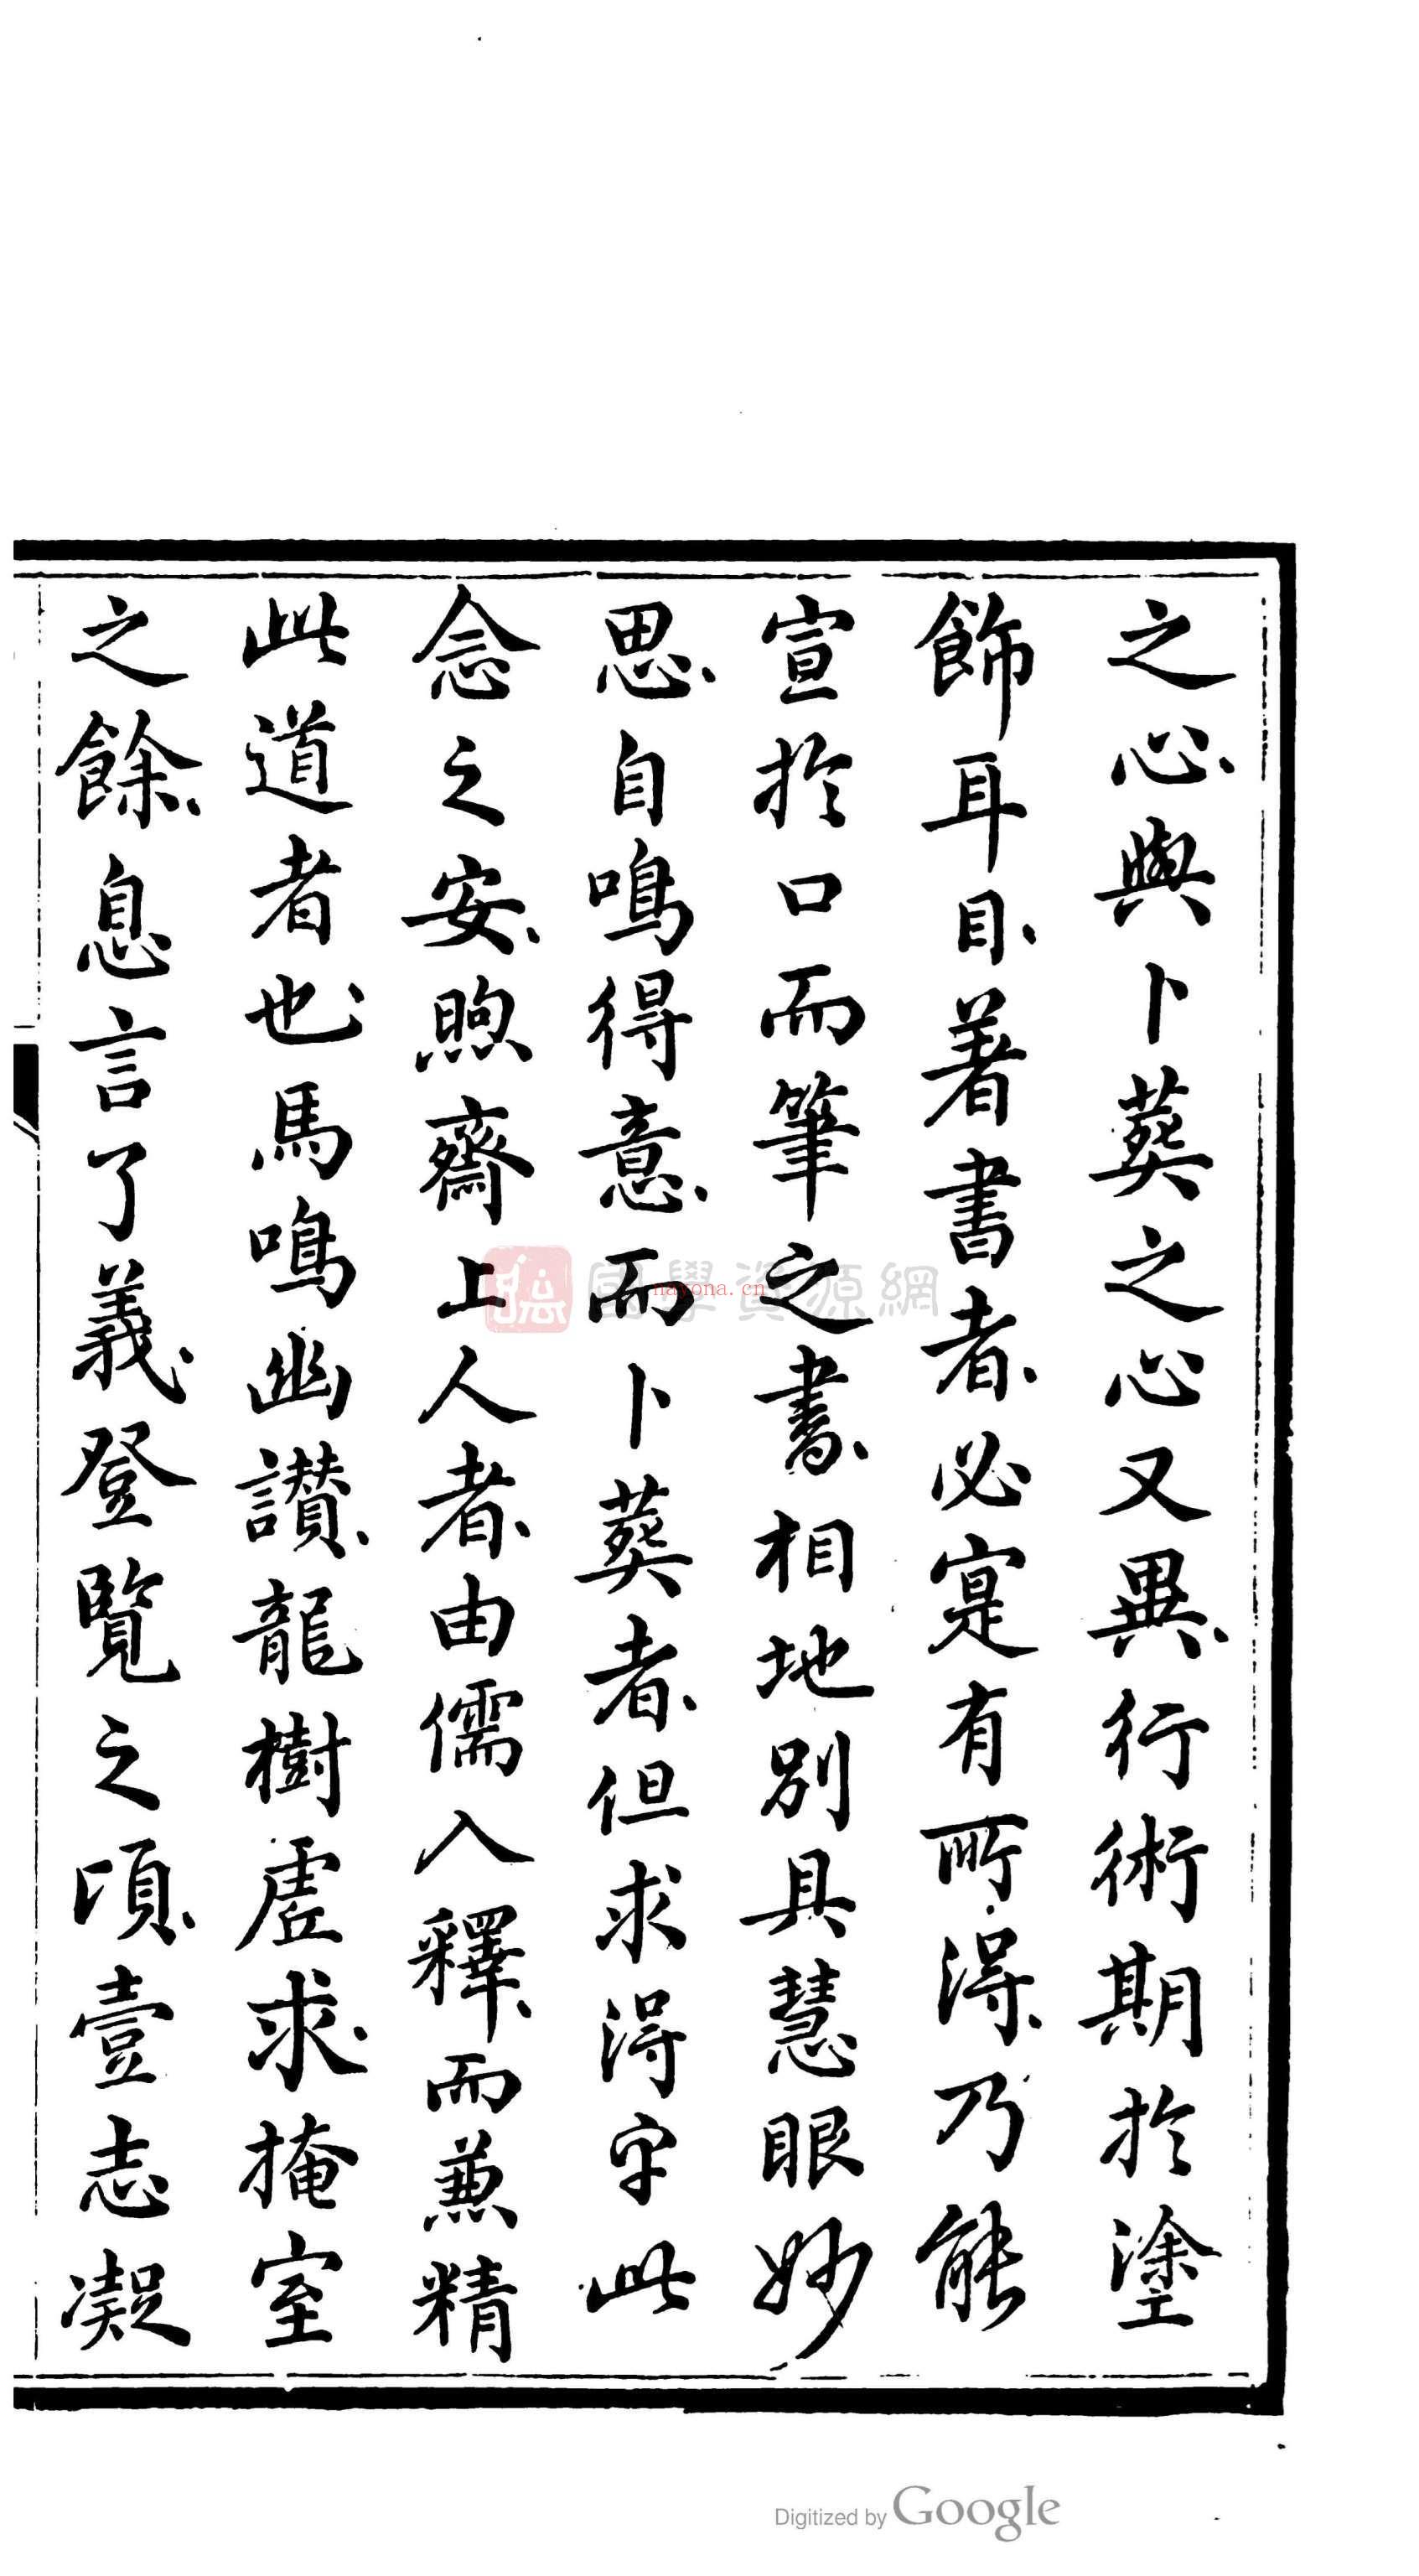 之心、與卜葬之心又異、行術期於塗
飾耳目、著書者、必寔有所得、乃能
宣於口而筆之書、相地別具慧眼妙
思、自鳴得意、而卜葬者、但求得乎此
念之安、煦齋上人者、由儒入釋、而兼精
此道者也、馬鳴幽讃、龍樹虛求、掩室
之餘、息言了義、登覽之頃、壹志凝
國學資源網
nayona.cn
Digitized by Google